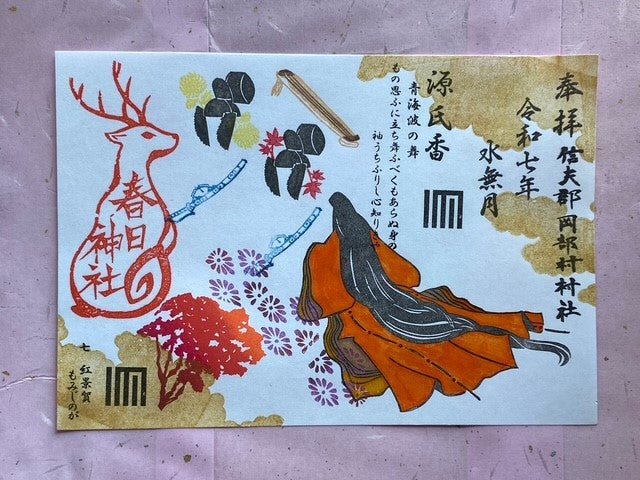 奉拝 信夫郡岡部村村社
令和七年
水無月
源氏香
青海波の舞
もの思ふに立ち舞ふべくもあらぬ身の
袖うちふりし心知り
春日
神社
七 紅葉賀
もみじのが